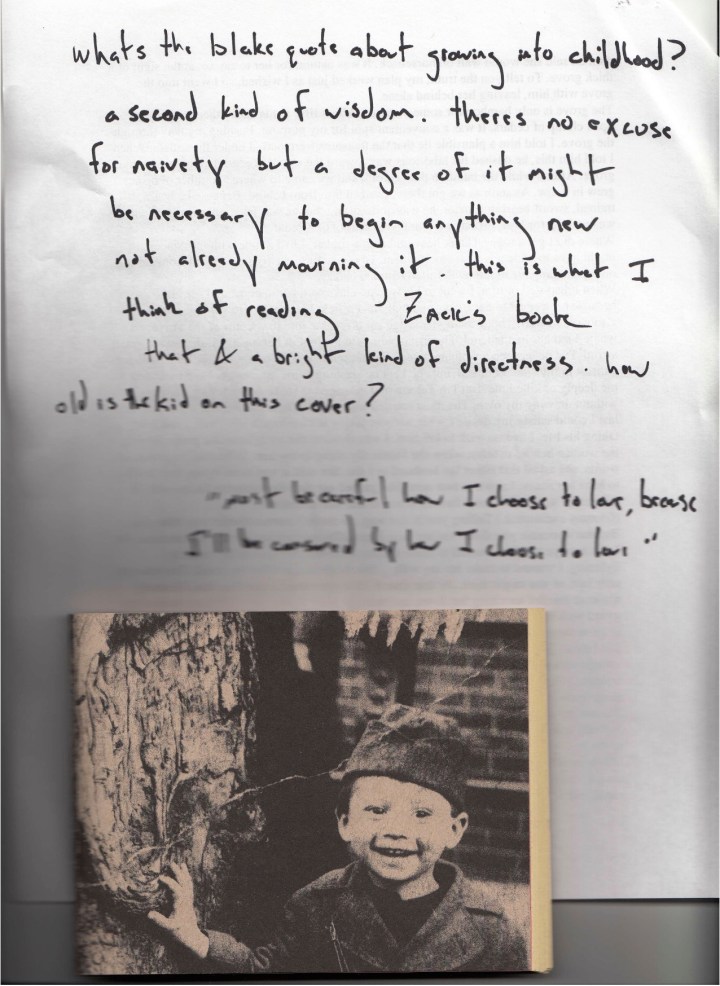 whats the blake quote about growing into childhood?
a second kind of wisdom theres no excuse
for naivety but a degree of it might
be necessary to begin anything new
not already mourning it. this is what I
think of reading Zack's book
that & a bright kind of directness. how
old is the kid on this cover?
"must be careful how I choose to love, because
I'll be consumed by how I choose to love"